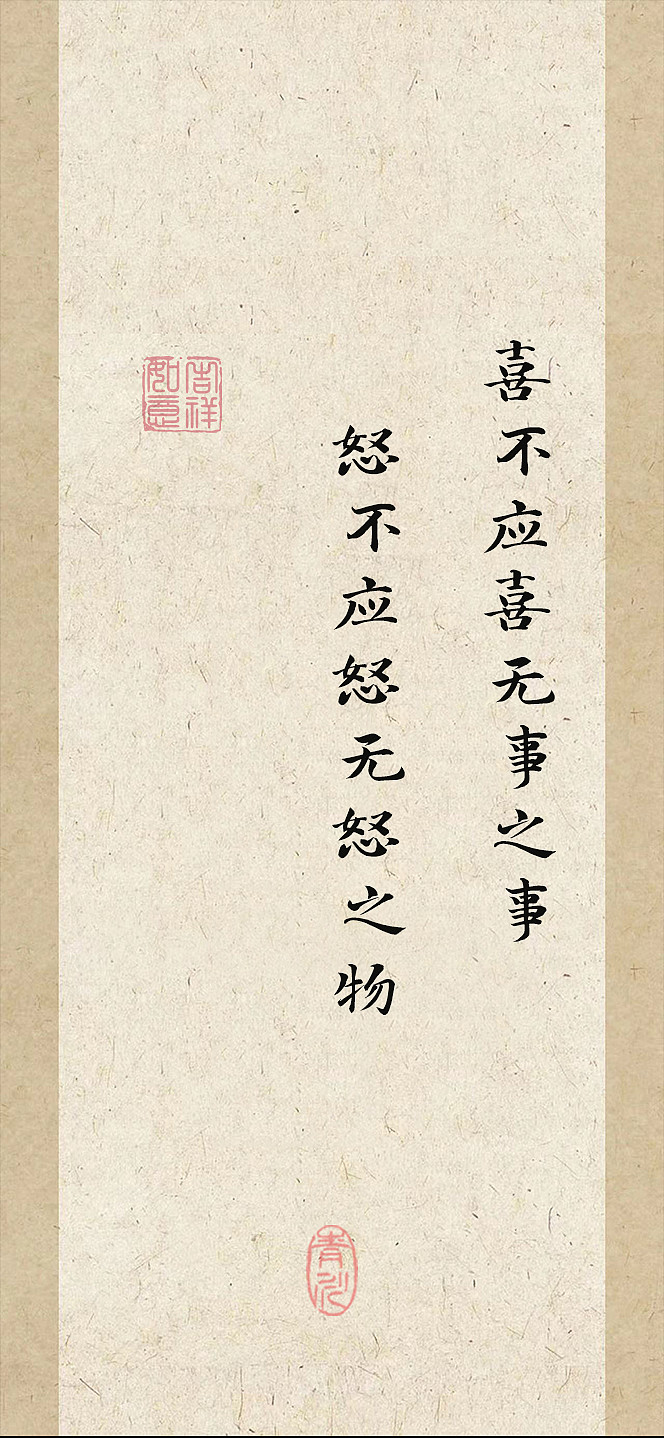 喜不应喜无事之事
怒不应怒无怒之物
吉祥如意